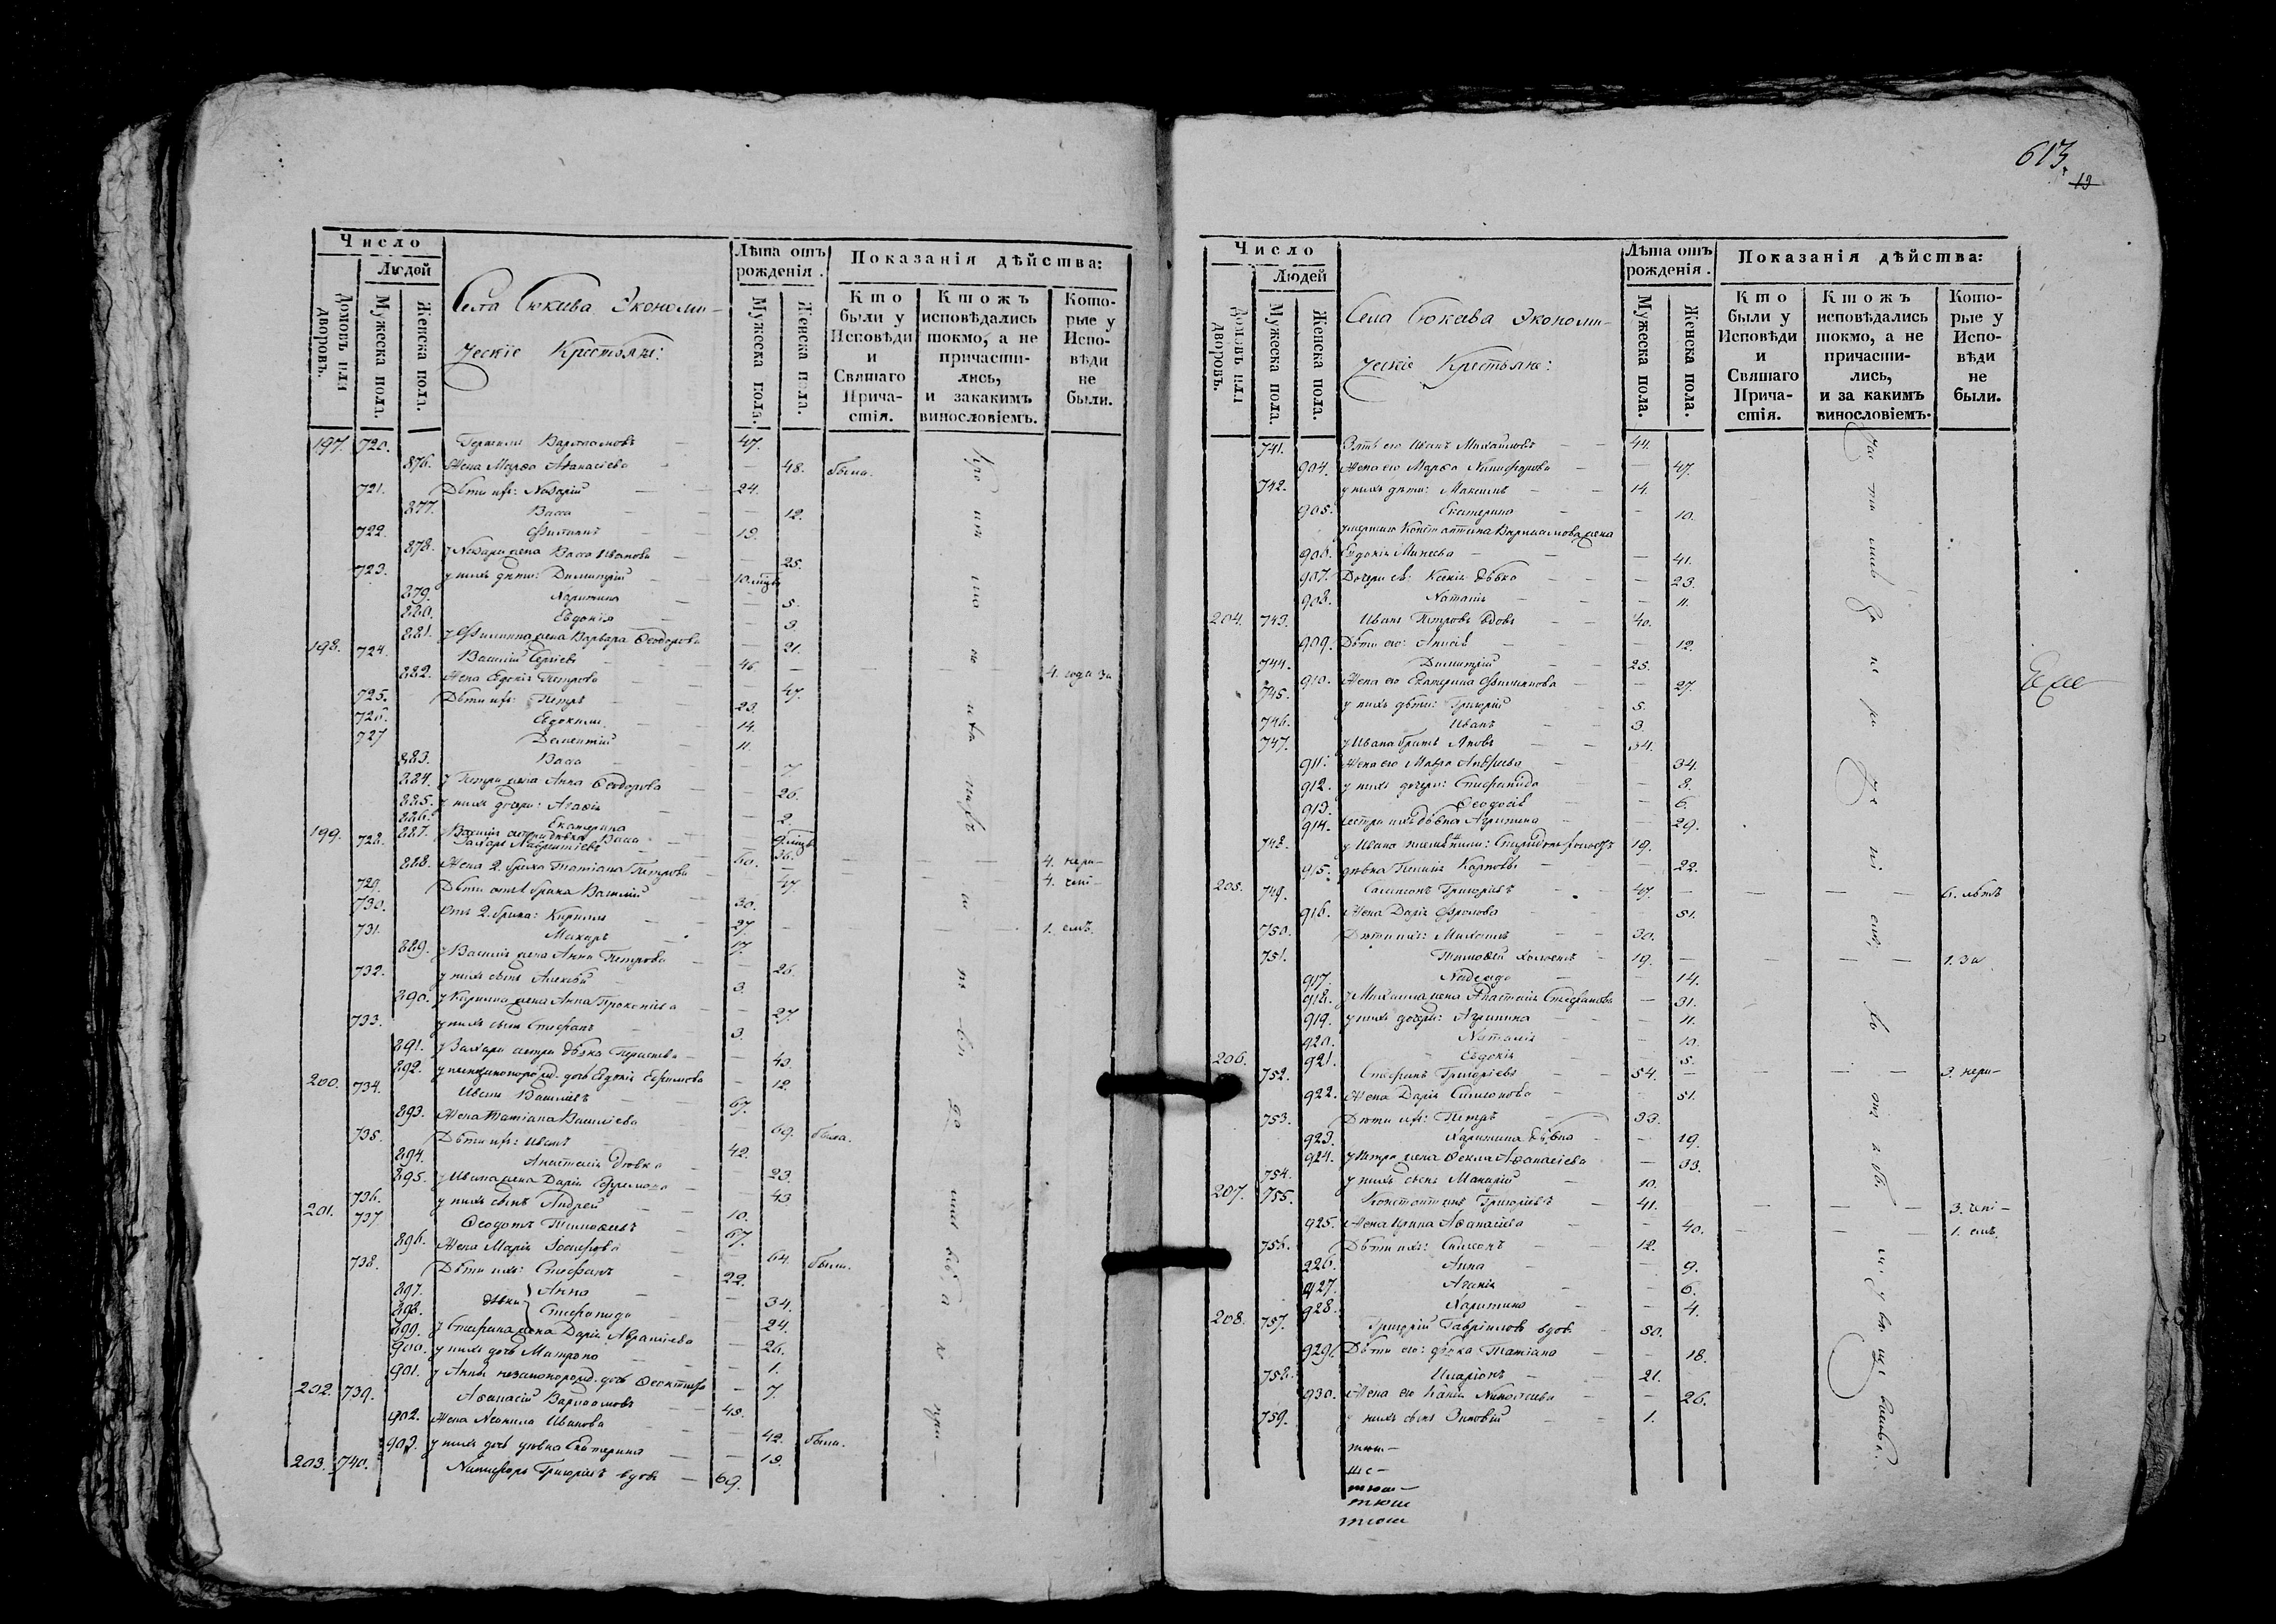 Число
Людей
Домовъ или дворовъ.
Мужеска пола.
Женска пола.
Села Сюкѣева Экономи-
ческіе Крестьяне:
Лѣта отъ рожденія.
Мужеска пола.
Женска пола.
Показанія дѣйства:
Кто были у Исповѣди и Святаго Прича-стія.
Ктожъ исповѣдались токмо, а не причасти-лись, и закакимъ винословіемъ.
Кото-рые у Испо-вѣди не были.
197. 720. Варлаамовъ — 47.
876. Жена Марѳа Аѳанасіева — 48. была.
721. Дѣти ихъ: Назарій — 24.
877. Васса — 12.
722. Филиппъ — 19.
878. у Назара жена Васса Иванова — 25.
723. у нихъ дѣти: Димитрій — 10.
879. Харитина — 5.
880. Евдокія — 3.
881. у Филиппа жена Варвара Ѳеодорова — 21.
198. 724. Василій Сергѣевъ — 46 — 4. года за
882. Жена Евдокія Петрова — 47.
725. Дѣти ихъ: Петръ — 23.
726. Евдокимъ — 14.
727 Дементій — 11.
883. Васса — 7.
884. у Петра жена Анна Ѳеодорова — 26.
885. у нихъ дочери: Агаѳія — 2.
886. Екатерина
887. Василія сестра дѣвка Васса — 36.
199. 728. Захаръ Лаврентіевъ — 60. — 4. нера-
888. Жена 2. брака Татіана Петрова — 47. — 4. чені-
729. Дѣти отъ 1 брака Василій — 30.
730. Отъ 2. брака: Кириллъ — 27. — 1. емъ.
731. Макаръ — 17.
889. у Василія жена Анна Петрова — 26.
732. у нихъ сынъ Алексѣй — 3.
890. у Кирилла жена Анна Прокопіева — 27.
733. у нихъ сынъ Стефанъ — 3.
891. у Захара сестра дѣвка — 43.
892. дочь Евдокія Ефимова — 12.
200. 734. Иванъ Васильевъ — 67.
893. Жена Татіана Васильева — 69. была.
735. Дѣти ихъ: Иванъ — 42.
894. Анастасія дѣвка — 23.
895. у Ивана жена Дарія Ефремова — 43.
736. у нихъ сынъ Андрей — 10.
201. 737 Ѳеодотъ Тимоѳеевъ — 67.
896. Жена Марія Іосифова — 64. была.
738. Дѣти ихъ: Стефанъ — 22.
897. дѣвки Анна — 34.
898. Стефанида — 24.
899. у Стефана жена Дарія — 26.
900. у нихъ дочь Матрона — 1.
901. у Анны незаконорожд. дочь Ѳеоктиста — 7.
202. 739. Аѳанасій Варлаамовъ — 43.
902. Жена Неонила Иванова — 42. была.
903. у нихъ дочь дѣвка Екатерина — 19.
203. 740. Никифоръ Григорьевъ вдовъ — 69.
613.
19
Число
Людей
Домовъ или дворовъ.
Мужеска пола
Женска пола.
Села Сюкѣева Экономи-
ческіе Крестьяне:
Лѣта отъ рожденія.
Мужеска пола.
Женска пола.
Показанія дѣйства:
Кто были у Исповѣди и Святаго Прича-стія.
Ктожъ исповѣдались токмо, а не причасти-лись, и за какимъ винословіемъ.
Кото-рые у Испо-вѣди не были.
741. Зять его Иванъ Михайловъ — 44.
904. Жена его Марѳа Никифорова — 47.
742. у нихъ дѣти: Максимъ — 14.
905. Екатерина — 10.
умершаго Константина Варлаамова жена
906. Евдокія Минеева — 41.
907. Дочери ея: Ксенія дѣвка — 23.
908. Наталія — 11.
204. 743. Иванъ Петровъ вдовъ — 40.
909. Дѣти его: Анисія — 12.
744. Димитрій — 25.
910. Жена его Екатерина Филиппова — 27.
745. у нихъ дѣти: Григорій — 5.
746. Иванъ — 3.
747. у Ивана братъ Яковъ — 34.
911. Жена его Мавра — 34.
912. у нихъ дочери: Стефанида — 8.
913. Ѳеодосія — 6.
914. сестра ихъ дѣвка Агрипина — 29.
748. у Ивана племянники: Спиридонъ холостъ 19.
915. дѣвка Карповы — 22.
205. 749. Самсонъ Григорьевъ — 47. — 6. лѣтъ
916. Жена Дарія Фролова — 51.
750. Дѣти ихъ: Михаилъ — 30.
751. Тимоѳей холостъ — 19. — 1. за
917. Надежда — 14.
918. у Михаила жена Анастасія Стефанова — 31.
919. у нихъ дочери: Агрипина — 11.
920. Наталія — 10.
921. Евдокія — 5.
206. 752. Стефанъ Григорьевъ — 54. — 3. нера-
922. Жена Дарія Симонова — 51.
753. Дѣти ихъ: Петръ — 33.
923. Харитина дѣвка — 19.
924. у Петра жена Ѳекла Аѳанасіева — 33.
754. у нихъ сынъ Макарій — 10.
207. 755. Константинъ Григорьевъ — 41. — 3. чені-
925. Жена Ирина Аѳанасіева — 40. — 1. емъ.
756. Дѣти ихъ: Симеонъ — 12.
926. Анна — 9.
927. Агаѳія — 6.
928. Харитина — 4.
208. 757. Григорій Гавріиловъ вдовъ — 50.
929. Дѣти его: дѣвка Татіана — 18.
758. Иларіонъ — 21.
930. Жена его Николаева — 26.
759. у нихъ сынъ Зиновій — 1.